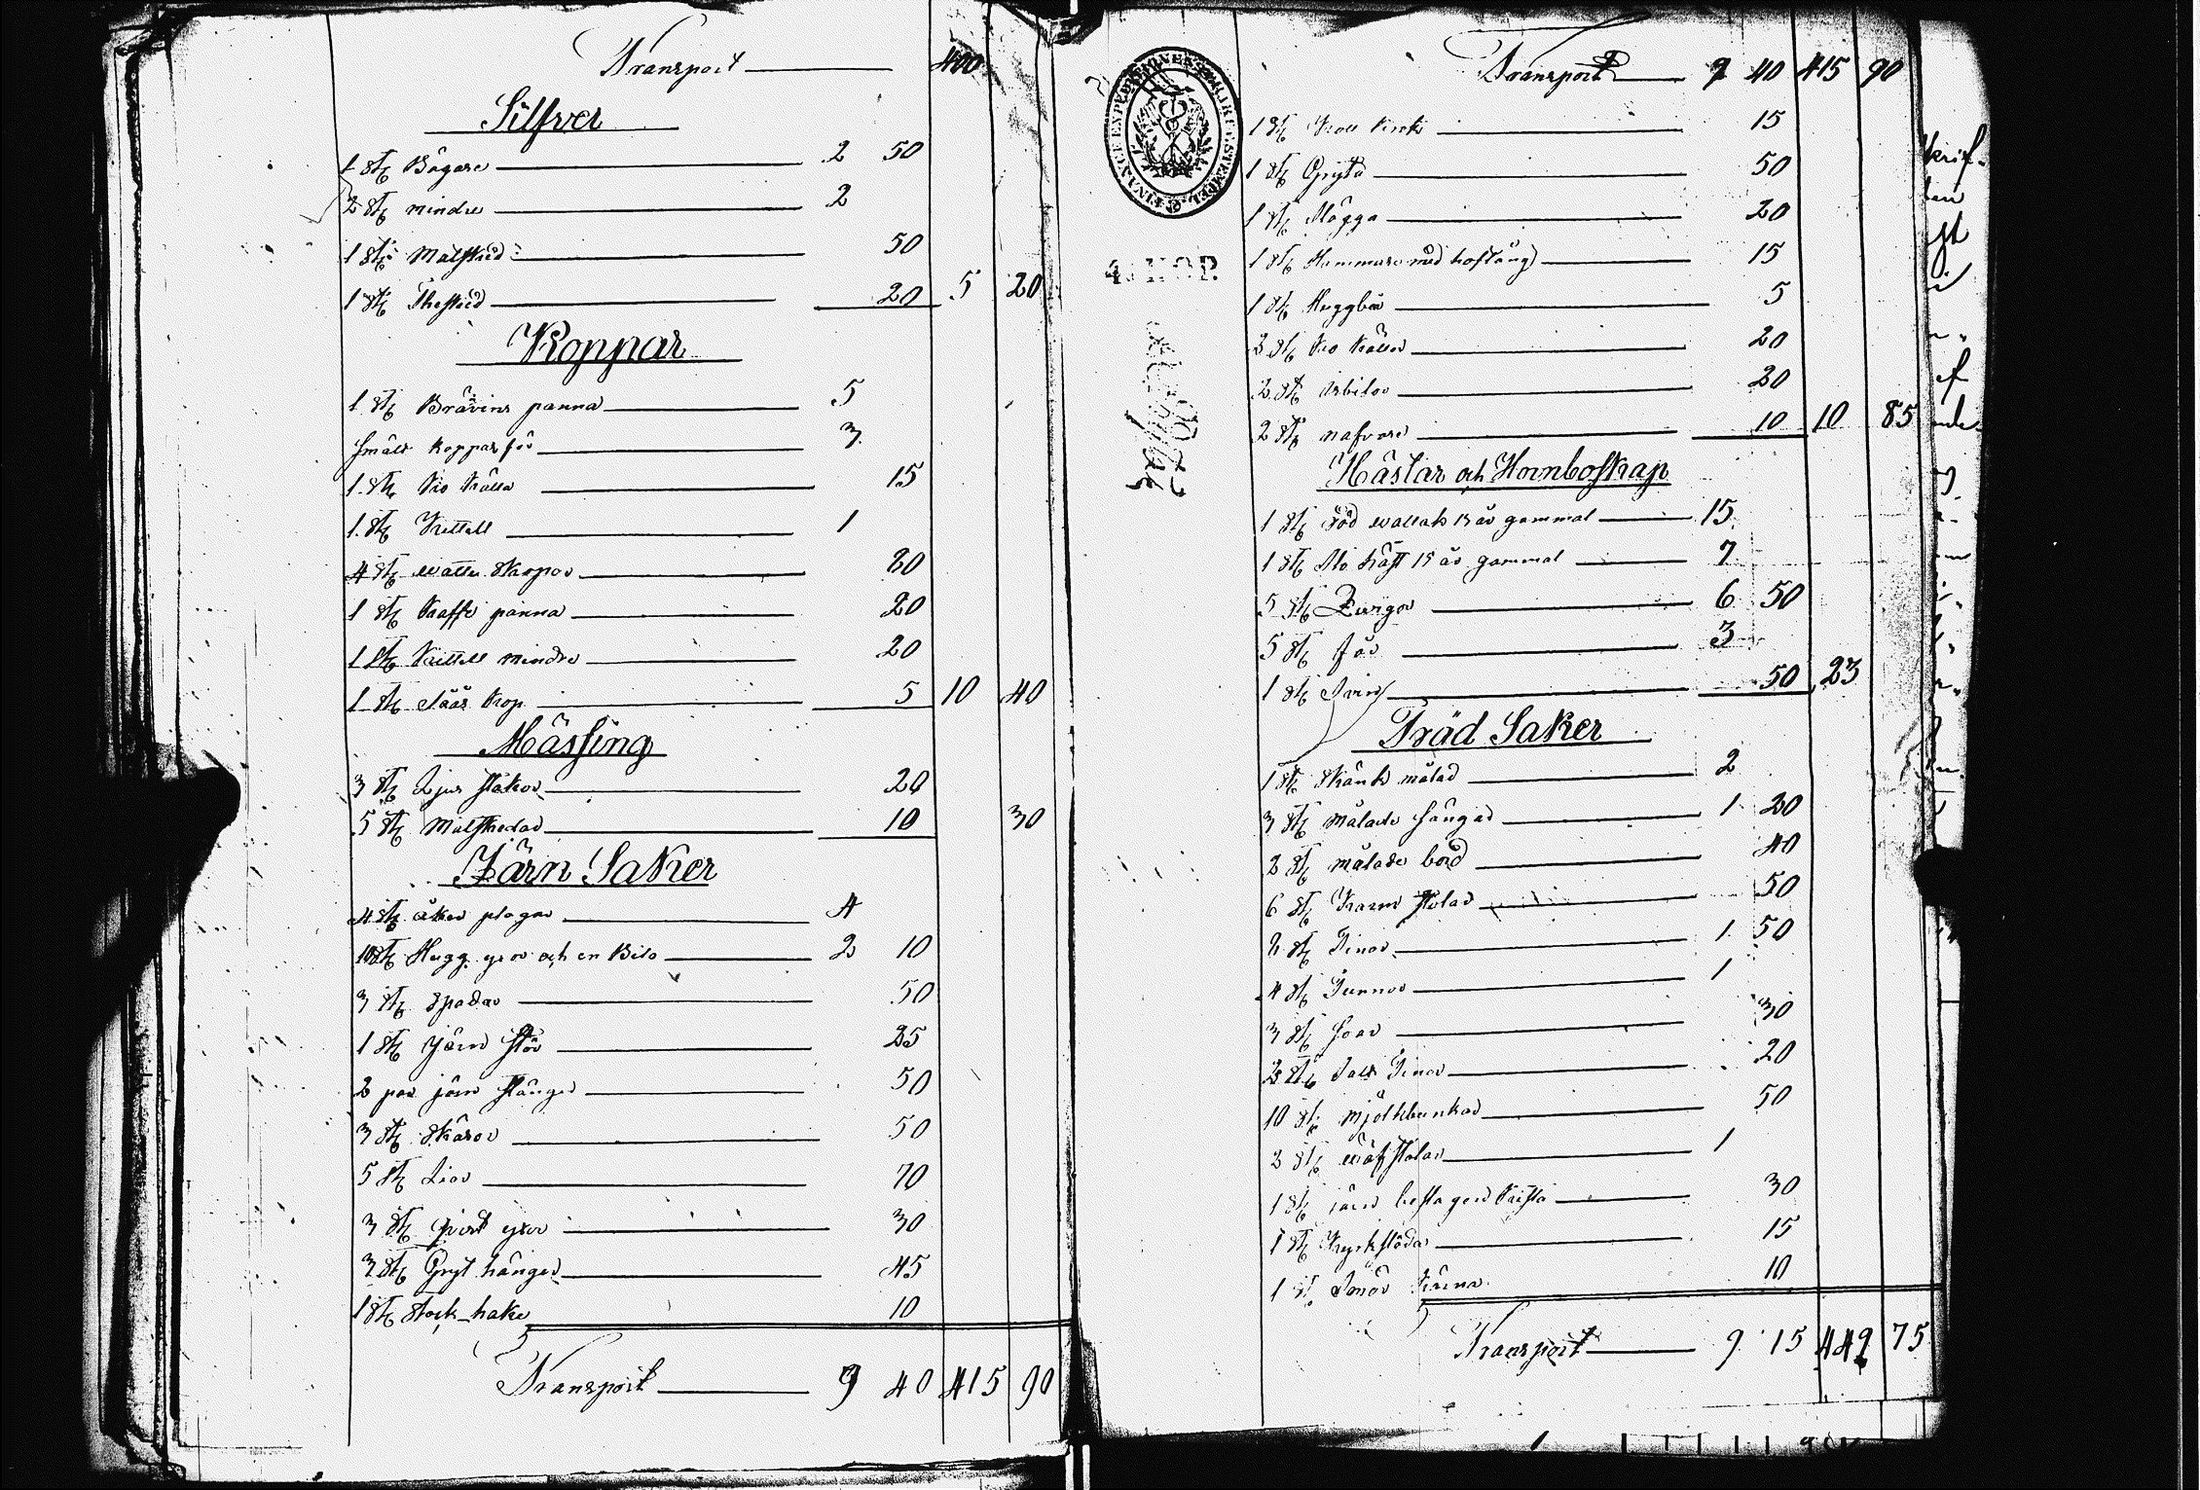 Transport — 400
Silfver
1 st Bägare — 2 50
2 st mindre — 2
1 st Matsked — 50
1 st Thesked — 20 5 20
Koppar
1 st Brävins panna — 5
smält kopparför — 3
1 st Kio Källa — 15
1 st Kettell — 1
4 st watten skopor — 80
1 st Kaffe panna — 20
1 st Kettell mindre — 20
1 st Säås kop — 5 10 40
Mässing
3 st Ljus stakar — 20
5 st Matskedar — 10 30
Järn Saker
4 st åker plogar — 4
10 st Hugg yxor och en Bila — 2 10
3 st Spadar — 50
1 st Järn stör — 25
2 par järn stänger — 50
3 st Skäror — 50
5 st Liar — 70
3 st yxor — 30
3 st Gryt hänger — 45
1 st Stock hake 10
Transport — 9 40 415 90
FINANCE EXPEDITIONENS
40 KOP.
Transport — 9 40 415 90
1 st — 15
1 st Gryta — 50
1 st — 20
1 st Hammare med hoftång — 15
1 st Huggbär — 5
— 20
2 st — 20
2 st nafvare — 10 10 85
Hästar och Hornboskap
1 st Röd wallack 13 år gammal — 15
1 st häst 15 år gammal — 7
5 st — 6 50
5 st får — 3
1 st Svin — 50 23
Träd Saker
1 st Skänk målad — 2
3 st Målade sängar — 1 20
2 st målade bord — 40
6 st Karm stolar — 50
st Tinor — 1 50
4 st Tunnor — 1
3 st Soar — 30
Salt Tinor — 20
10 st Mjölkbunkar — 50
2 st wäfstolar — 1
1 st järn beslagen Kista — 30
1 st — 15
1 st Smör Kärna 10
Transport — 9 15 449 75